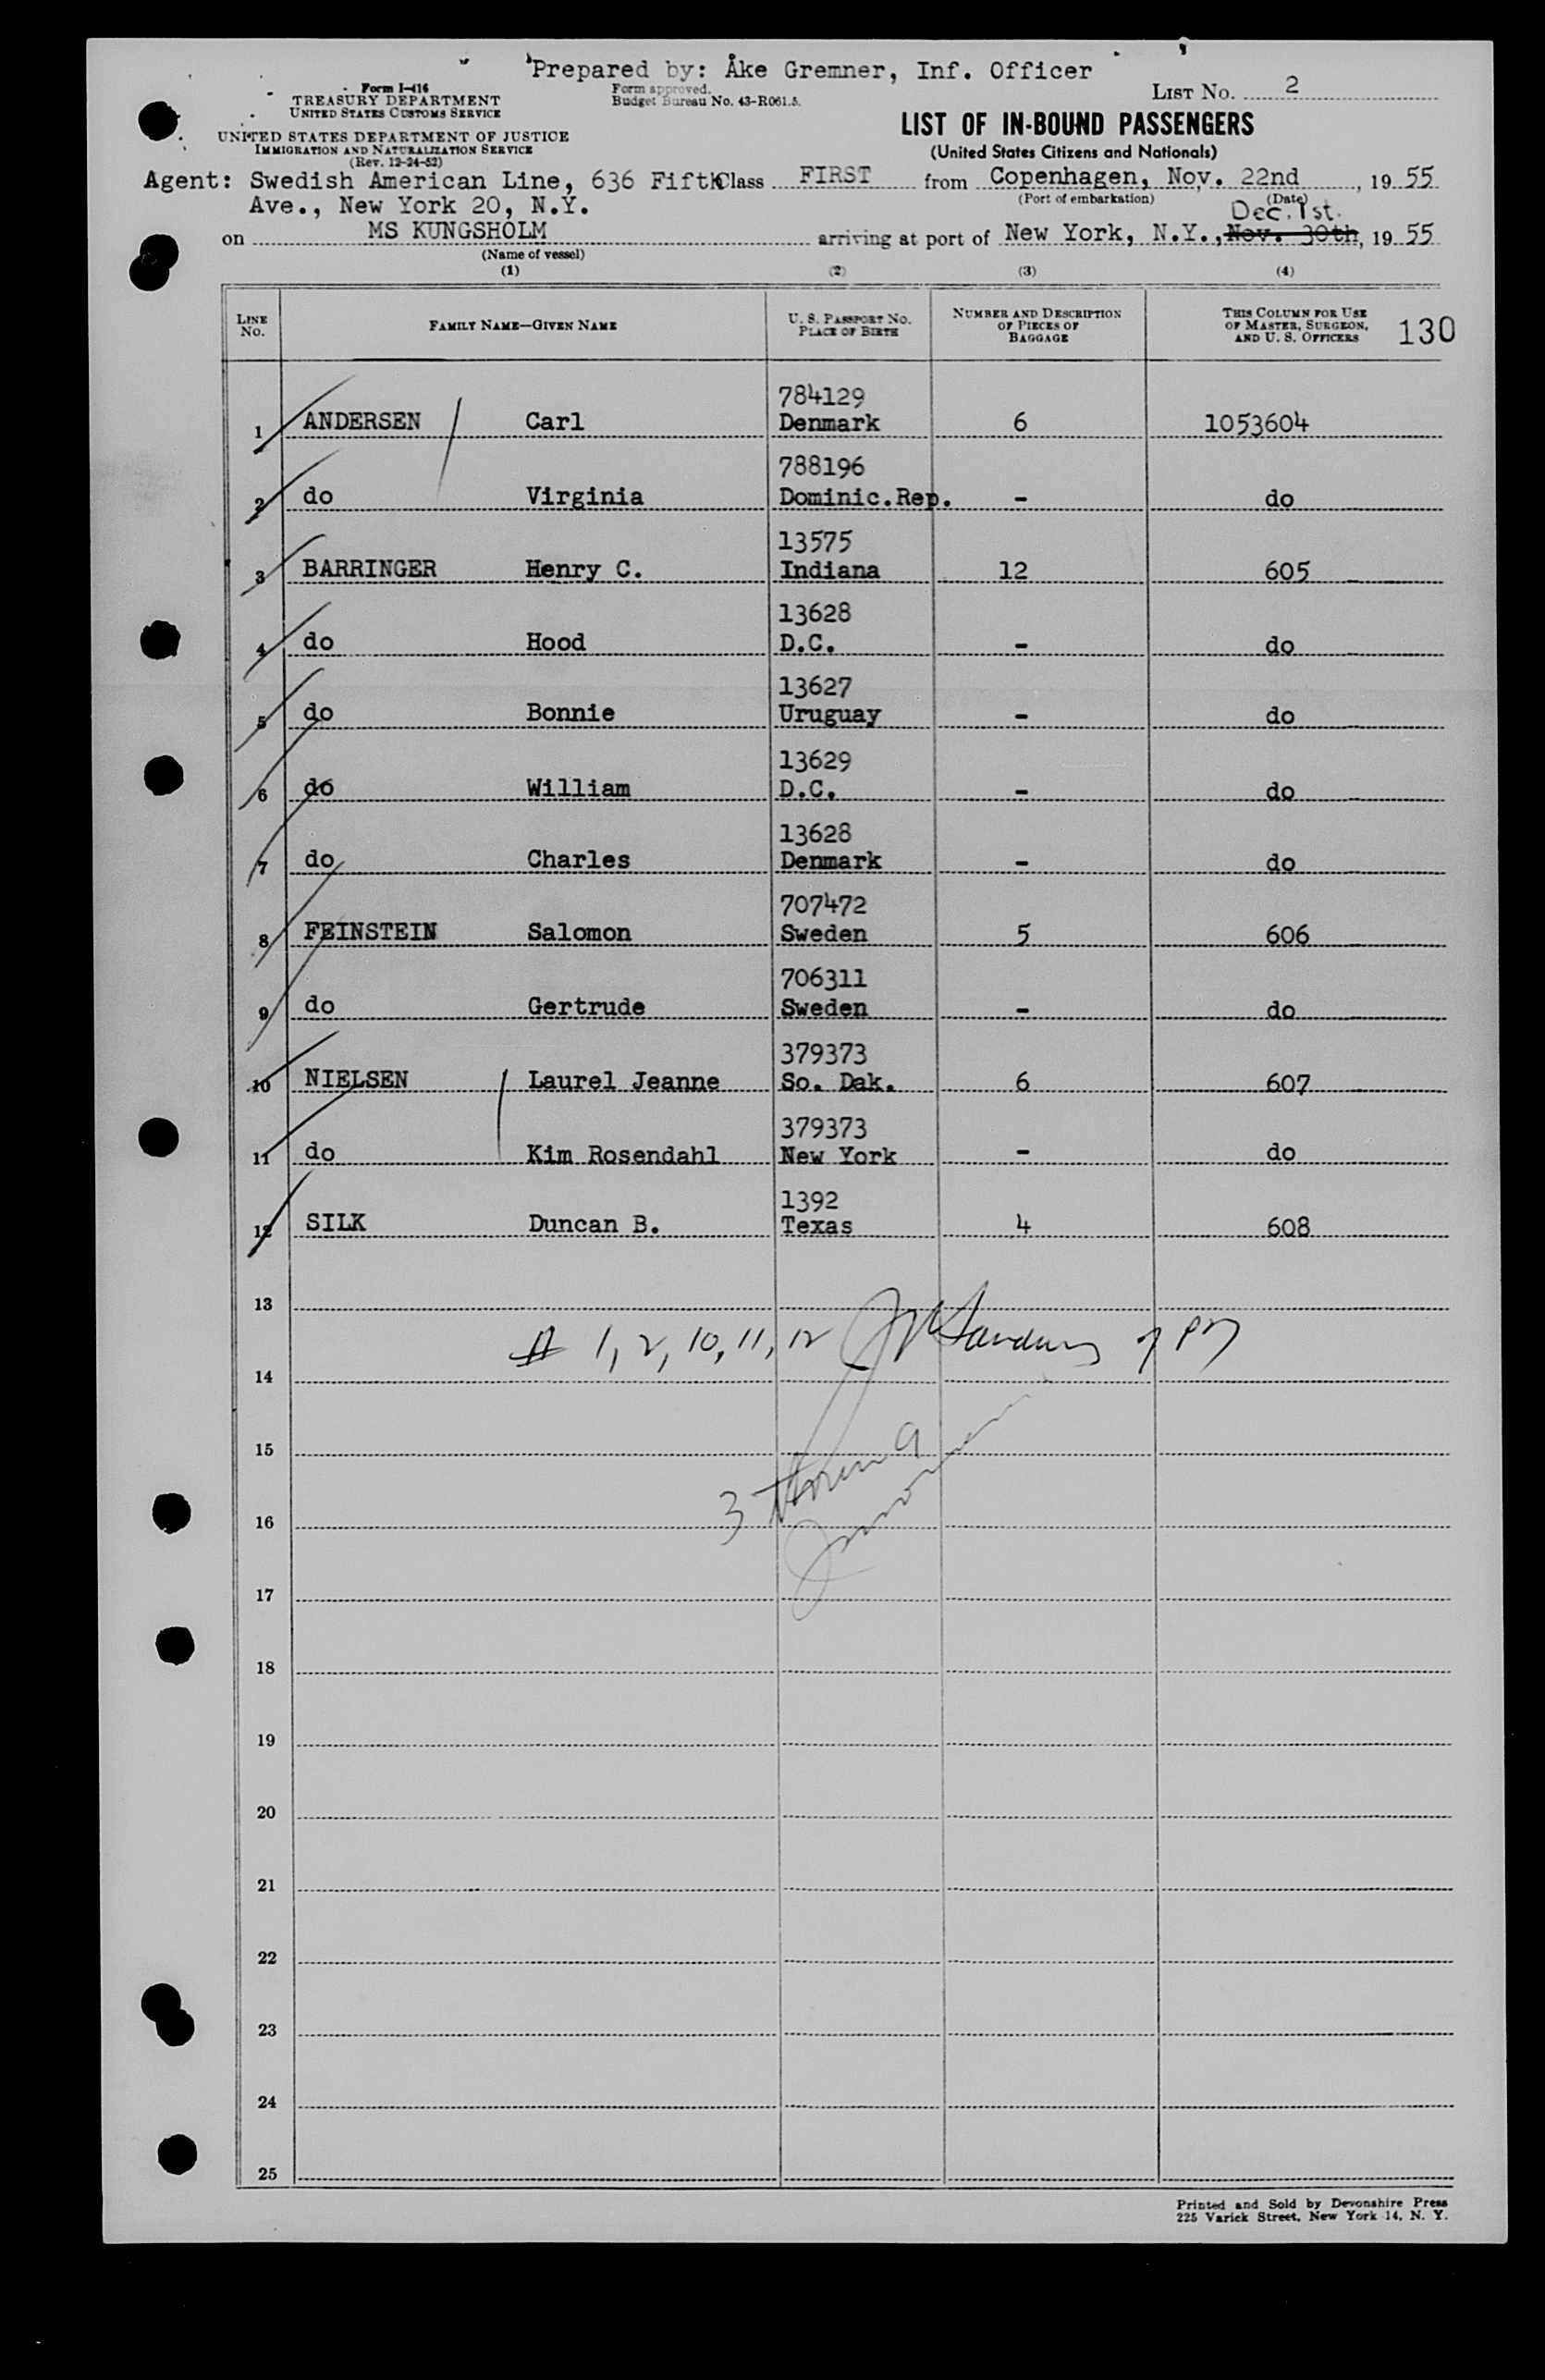 Prepared by: Åke Gremner, Inf. Officer
Form I-416
TREASURY DEPARTMENT
UNITED STATES CUSTOMS SERVICE
Form approved.
Budget Bureau No. 43-R061.5.
LIST NO. 2
UNITED STATES DEPARTMENT OF JUSTICE
IMMIGRATION AND NATURALIZATION SERVICE
(Rev. 12-24-52)
LIST OF IN-BOUND PASSENGERS
(United States Citizens and Nationals)
Agent: Swedish American Line, 636 Fifth Class FIRST from Copenhagen, Nov. 22nd, 19 55
Ave., New York 20, N.Y.
(Port of embarkation) (Date)
Dec. 1st.
on MS KUNGSHOLM arriving at port of New York, N.Y., Nov. 30th, 19 55
(Name of vessel)
(1) (2) (3) (4)
LINE NO. FAMILY NAME—GIVEN NAME U. S. PASSPORT NO. PLACE OF BIRTH NUMBER AND DESCRIPTION OF PIECES OF BAGGAGE THIS COLUMN FOR USE OF MASTER, SURGEON, AND U. S. OFFICERS 130
784129
1 ANDERSEN Carl Denmark 6 1053604
788196
2 do Virginia Dominic.Rep. - do
13575
3 BARRINGER Henry C. Indiana 12 605
13628
4 do Hood D.C. - do
13627
5 do Bonnie Uruguay - do
13629
6 do William D.C. - do
13628
7 do Charles Denmark - do
707472
8 FEINSTEIN Salomon Sweden 5 606
706311
9 do Gertrude Sweden - do
379373
10 NIELSEN Laurel Jeanne So. Dak. 6 607
379373
11 do Kim Rosendahl New York - do
1392
12 SILK Duncan B. Texas 4 608
13
1, 2, 10, 11, 12
14
15
3 thru 9
16
17
18
19
20
21
22
23
24
25
Printed and Sold by Devonshire Press
225 Varick Street, New York 14, N. Y.